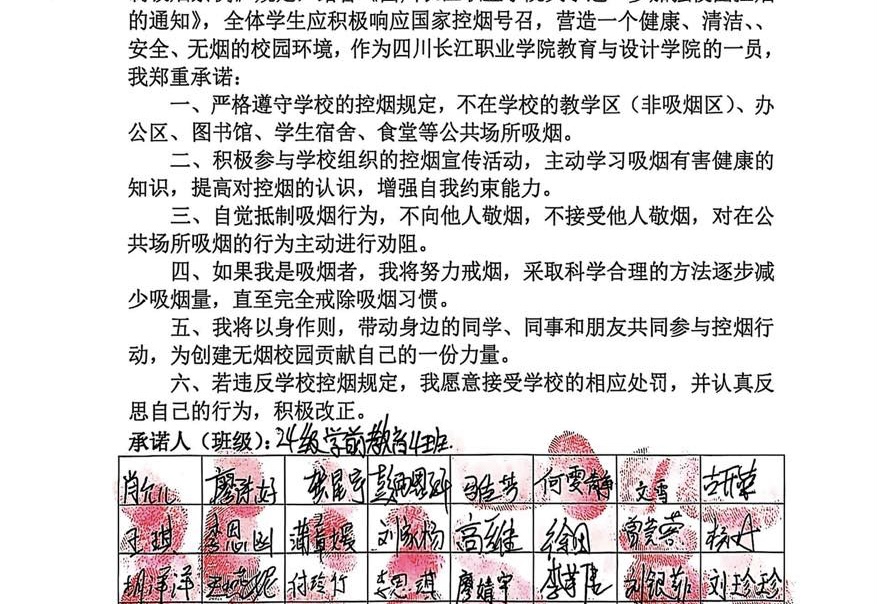 的通知》，全体学生应积极响应国家控烟号召，营造一个健康、清洁、、
安全、无烟的校园环境，作为四川长江职业学院教育与设计学院的一员，
我郑重承诺：
一、严格遵守学校的控烟规定，不在学校的教学区（非吸烟区）、办
公区、图书馆、学生宿舍、食堂等公共场所吸烟。
二、积极参与学校组织的控烟宣传活动，主动学习吸烟有害健康的
知识，提高对控烟的认识，增强自我约束能力。
三、自觉抵制吸烟行为，不向他人敬烟，不接受他人敬烟，对在公
共场所吸烟的行为主动进行劝阻。
四、如果我是吸烟者，我将努力戒烟，采取科学合理的方法逐步减
少吸烟量，直至完全戒除吸烟习惯。
五、我将以身作则，带动身边的同学、同事和朋友共同参与控烟行
动，为创建无烟校园贡献自己的一份力量。
六、若违反学校控烟规定，我愿意接受学校的相应处罚，并认真反
思自己的行为，积极改正。
承诺人（班级）：24级学前教育4班
何雯静 文雪
王琪 李思 刘 杨 高维 徐田 杨
胡洋洋 李思琪 廖婧宇 刘银 刘珍珍